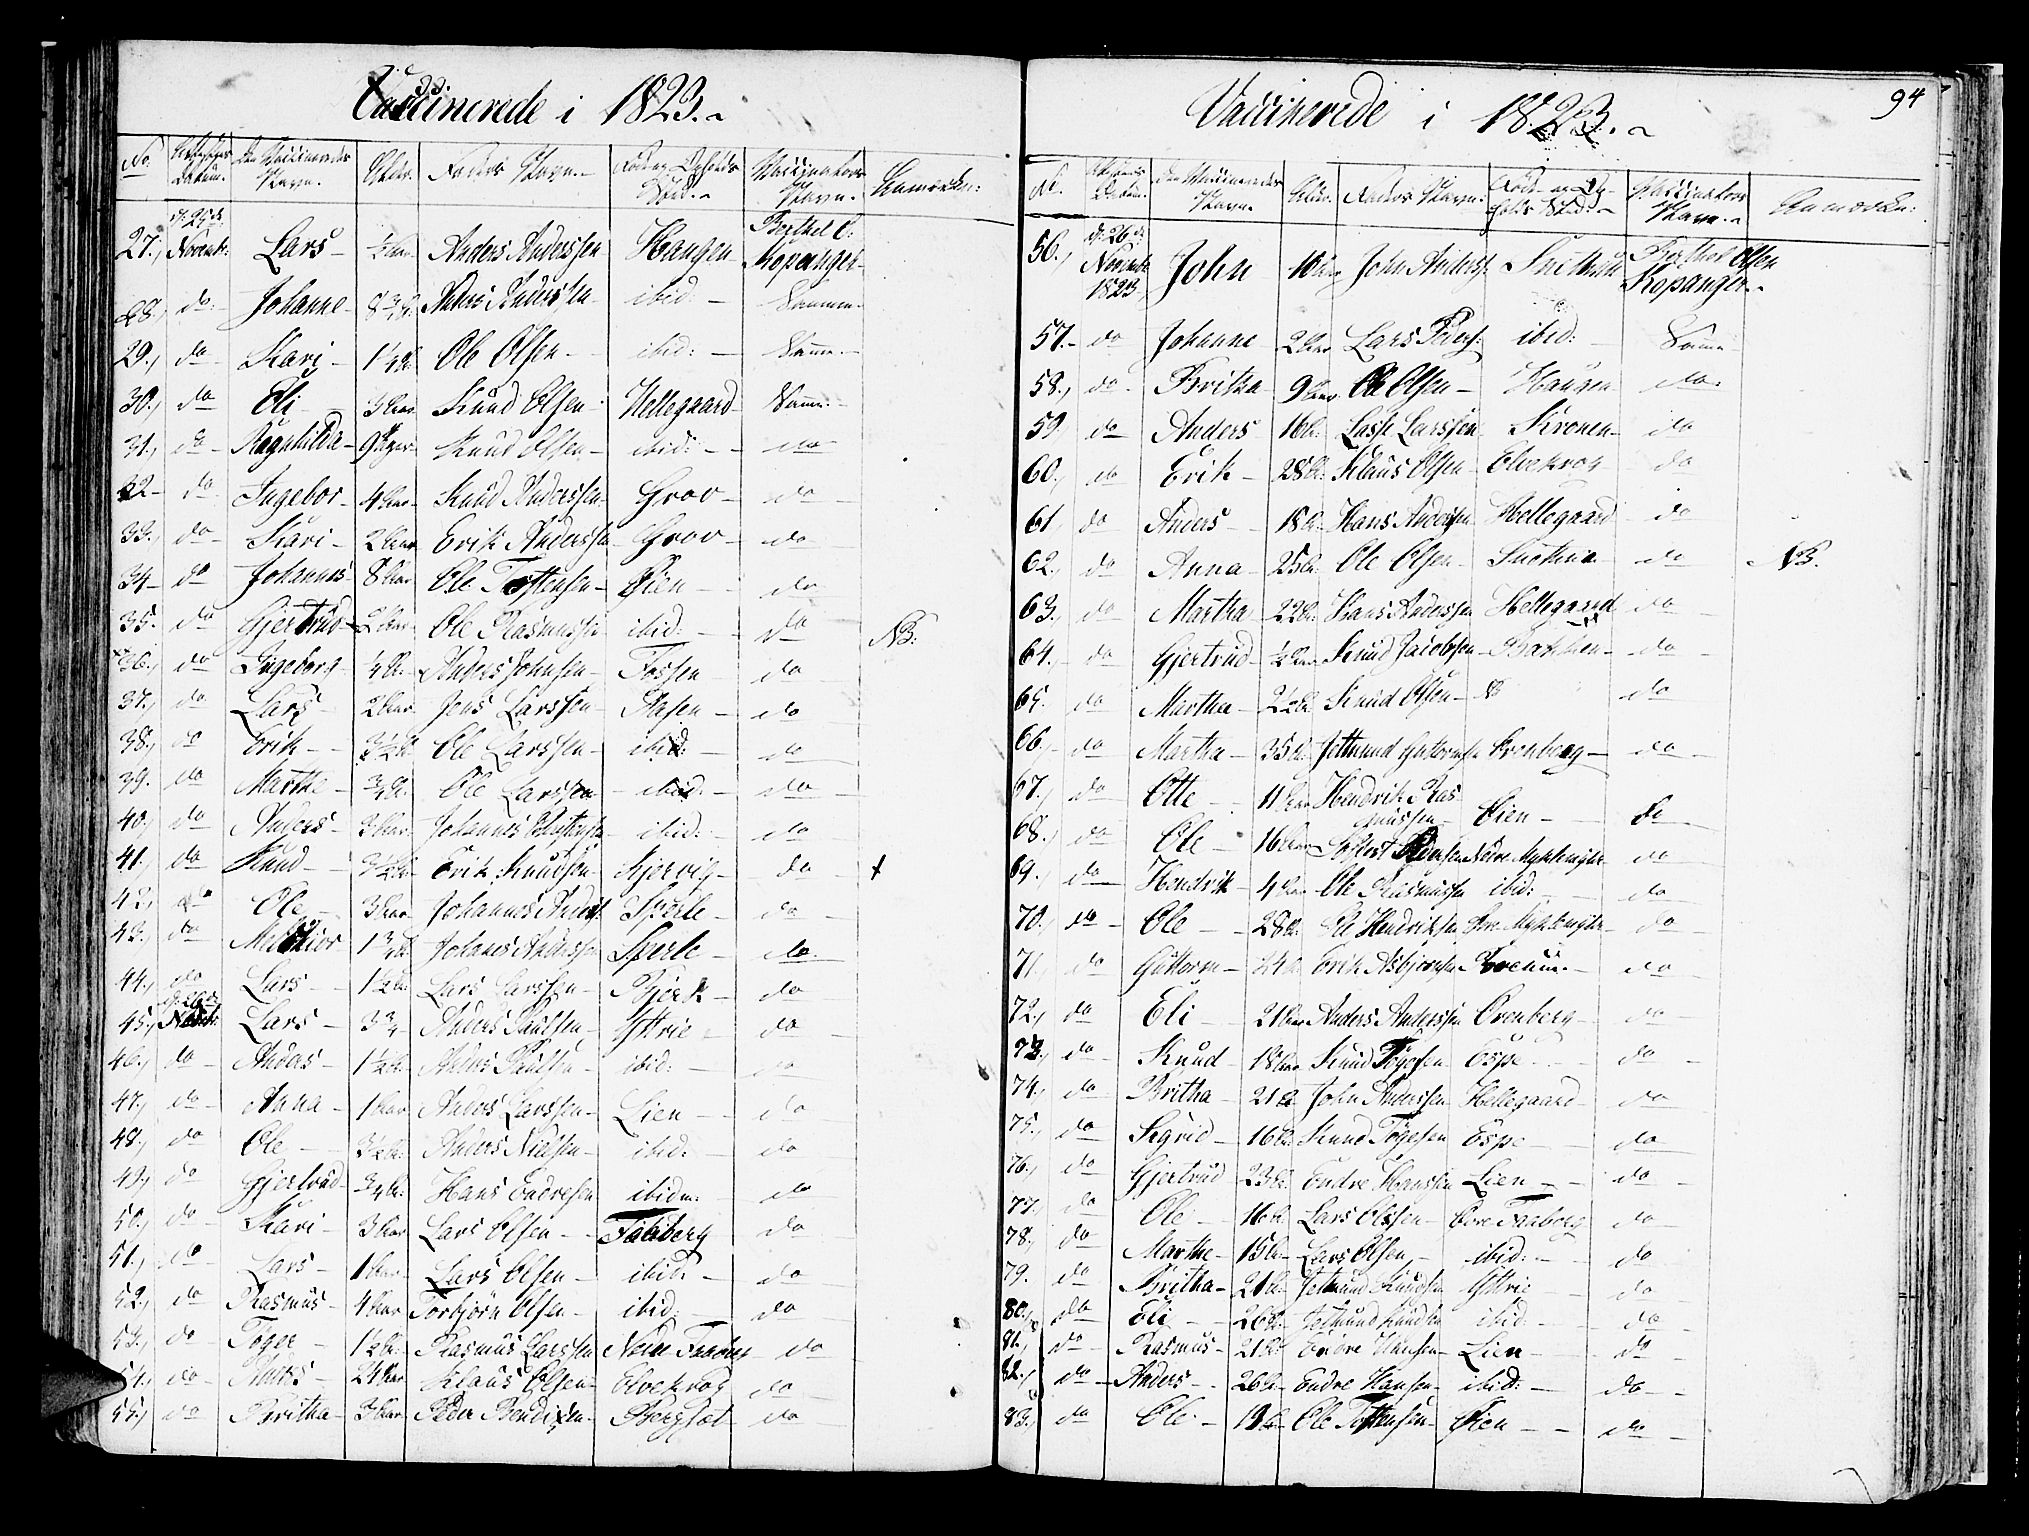 Vaccinerede i 1823.
No. Den Vaccineredes Navn. Alder. Faders Navn. Føde og Opholds Sted. Vaccinateurs Navn. Anmærkn:
27., d. 25de Novembr: Lars ½ Aar Anders Anderssen Haugen Berthel O. Kopanger
28., do: Johanne Anders Anderssen ibid: Samme
29., do Kari 1¼ A. Ole Olsen ibid: Samme
30., do Eli 3 Aar Knud Olsen Hellegaard Samme
31., do Ragnhilda Knud Olsen ibid: do
32 do Ingebor 4 Aar Knud Anderssen Grov do
33., do Kari 2 Aar Erik Anderssen Grov do
34 do Johannes 8 Aar Ole Tostensen Øien do
35. do Gjertrud 2 Aar Ole Rasmussen ibid: do NB.
36., do Ingeborg ¼ A. Anders Johnsen Fossen do
37. do Lars 2 Aar Jens Larssen Aasen do
38., do Erik 3½ A. Ole Larssen ibid: do
39. do Marthe ¾ A. Ole Larssen ibid: do
40., do Anders 3 Aar Johannes ibid: do
41., do Knud 3½ A. Erik Knudsen Kjervig do +
42., do Ole 3 Aar Johannes Anderss. Sperle do
43. do Melchior 1¾ A. Johanes Anderssen Sperle do
44. do Lars 1½ A. Lars Larssen Bjerk do
45., d. 26de Novbr: Lars 3¾ Anders Paulsen Yttrie do
46., do Anders 1½ A. Anders Paulsen ibid: do
47., do Anna 1 Aar Anders Larssen Lien do
48., do Ole 3½ A. Anders Nielsen ibid: do
49., do Gjertrud ¾ A. Hans Endresen ibidm: do
50., do Kari 3 Aar Lars Olsen Faaberg do
51., do Lars 1 Aar Lars Olsen ibid: do
52., do Rasmus 4 Aar Torbjørn Olsen ibid: do
53., do Tøger 1½ A. Rasmus Larssen Nedre Faaberg do
54., do 24 Aar Klaus Olsen Elvekrog do
55., do Britha 3 Aar Peder Bendixen Bergset do
94
Vaccinerede i 1823.
No. Den Vaccineredes Navn. Alder. Faders Navn. Føde- og Opholds Sted. Vaccinateurs Navn. Anmærkn:
56., d. 26de Novembr 1823 John 10 Aar John Anderss. Berthel Olsen Kopanger
57. do Johanne 2 Aar Lars Peders. ibid: Samme
58., do Britha 9 Aar Ole Olsen Haugen do
59. do Anders 16 A. Lasse Larssen Kronen do
60., do Erik 28 A. Klaus Olsen Elvekrog do
61. do Anders 18 A. Hans Anderssen Hellegaard do
62., do Anna 25 A. Ole Olsen do NB.
63. do Martha 22 A. Hans Anderssen Hellegaard do
64., do Gjertrud Knud Jacobsen Bakken do
65. do Martha 22 A. Knud Olsen do
66., do Martha 35 A. Jetmund Guttormsen Kronberg do
67., do Otte 11 Aar Hendrik Rasmussen Øien do
68., do Ole 16 Aar Pedersen Nedre Myklemyhr do
69., do Hendrik 4 Aar Ole Rasmussen ibid: do
70., do Ole 28 A. Ole Hendrikssen Øvre Myklemyhr do
71. do Guttorm 24 A. Erik Asbjørnsen do
72., do Eli 21 Aar Anders Anderssen Cronberg do
73., do Knud 18 Aar Knud Tøgersen Espe do
74., do Britha 21 A. John Anderssen Hellegaard do
75., do Sigrid 16 A. Knud Tøgesen Espe do
76., do Gjertrud 23 A. Endre Hanssen Lien do
77., do Ole 16 A. Lars Olssen Øvre Faaberg do
78., do Marthe 15 A. Lars Olsen ibid: do
79. do Britha 21 A. Jetmund Knudsen Yttrie do
80., do Eli 26 A. Jetmund Knudsen ibid: do
81., do Rasmus 21 A. Endre Hansen Lien do
82., do Anders 26 A. Endre Hansen ibid: do
83., do Ole Ole Tostensen Øien do